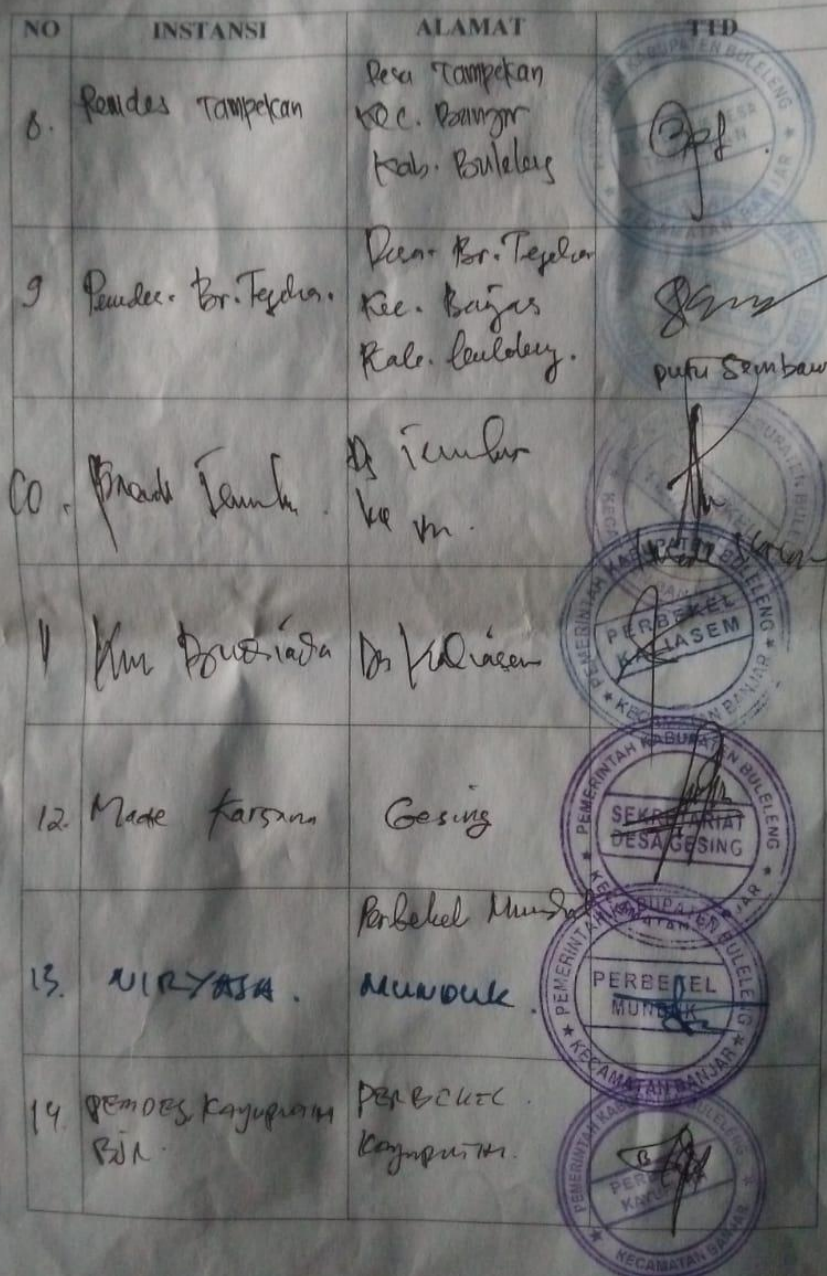 NO INSTANSI ALAMAT TTD
8. Pemdes Tampekan
Desa Tampekan
Kec. Banjar
Kab. Buleleng
PEMERINTAH KABUPATEN BULELENG
KECAMATAN BANJAR
9 Pemdes. Br. Tegeha.
Desa. Br. Tegeha
Kec. Banjar
Kab. Buleleng.
putu Sembaw
10.
Ds
11 Km Ds Kaliasem
PEMERINTAH KABUPATEN BULELENG
PERBEKEL
KALIASEM
KECAMATAN BANJAR
12. Made Karsana Gesing
PEMERINTAH KABUPATEN BULELENG
SEKRETARIAT
DESA GESING
KECAMATAN BANJAR
Perbekel Munduk
13. NIRYASA. MUNDUK.
PEMERINTAH KABUPATEN BULELENG
PERBEKEL
MUNDUK
KECAMATAN BANJAR
14. PEMDES Kayuputih
BJR.
PERBEKEL.
Kayuputih.
PEMERINTAH KABUPATEN BULELENG
KECAMATAN BANJAR